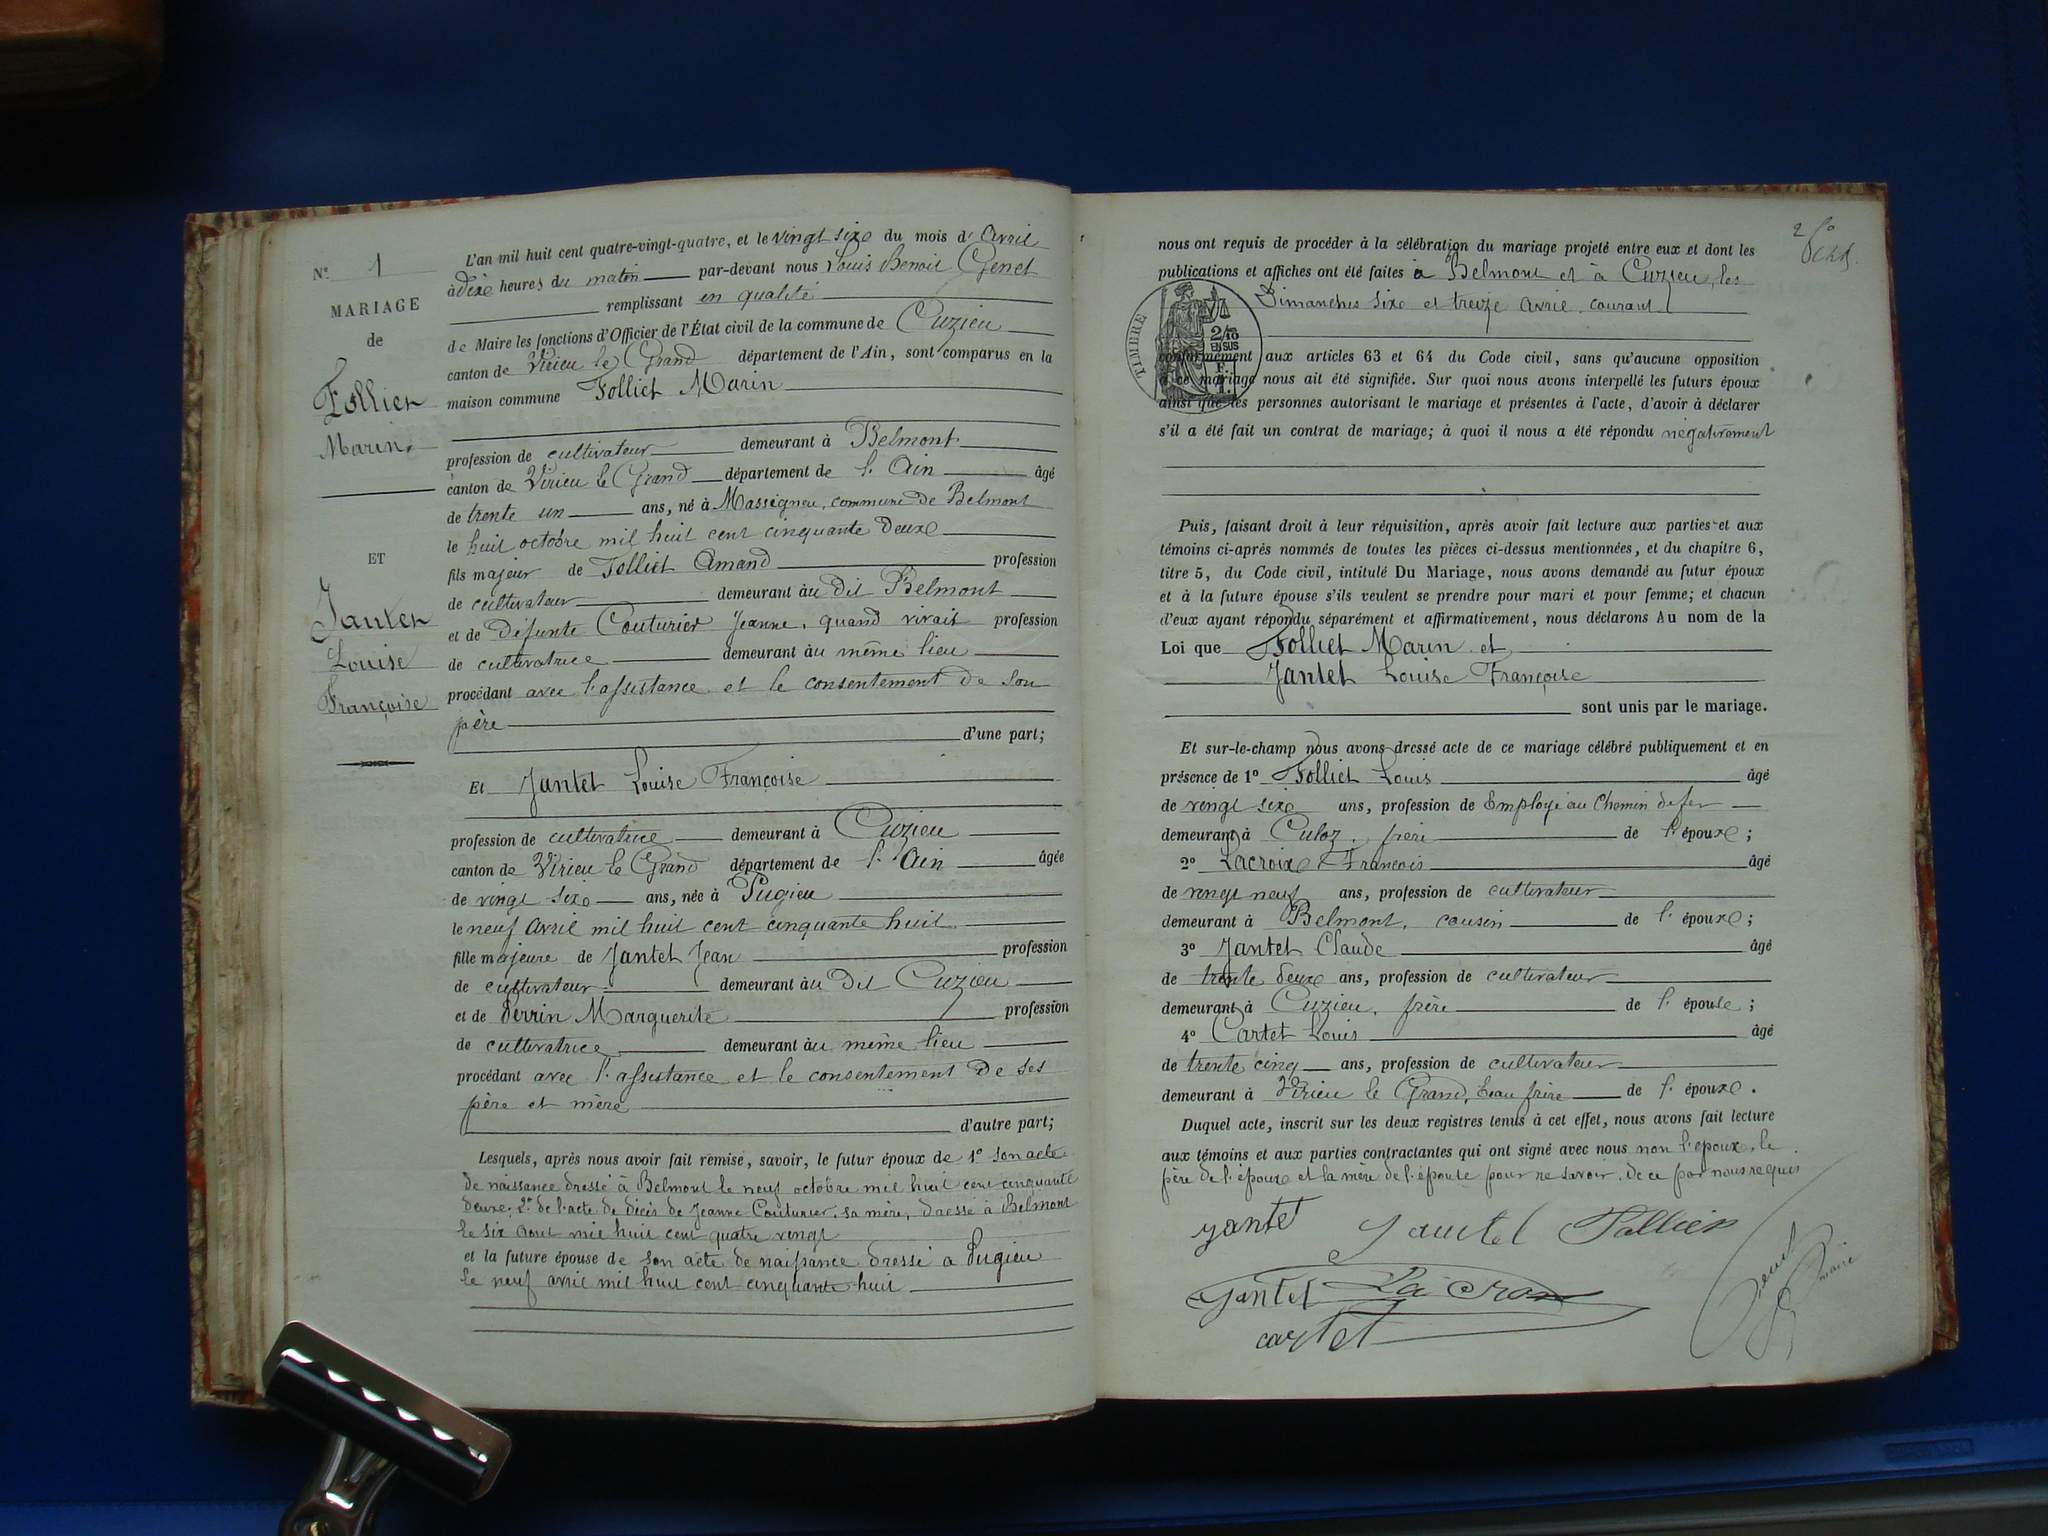 N° 1
MARIAGE
de
Folliet
Marin.
ET
Jantet
Louise
Françoise
L'an mil huit cent quatre-vingt-quatre, et le vingt six du mois d'Avril
à dix heures du matin par-devant nous Louis Benoit Genet
remplissant en qualité
de Maire les fonctions d'Officier de l'État civil de la commune de Cuzieu
canton de Virieu le Grand département de l'Ain, sont comparus en la
maison commune Folliet Marin
profession de cultivateur demeurant à Belmont
canton de Virieu le Grand département de l'Ain âgé
de trente un ans, né à Massigneu, commune de Belmont
le huit octobre mil huit cent cinquante deux
fils majeur de Folliet Amand profession
de cultivateur demeurant au dit Belmont
et de défunte Couturier Jeanne, quand vivait profession
de cultivatrice demeurant au même lieu
procédant avec l'assistance et le consentement de son
père
d'une part;
Et Jantet Louise Françoise
profession de cultivatrice demeurant à Cuzieu
canton de Virieu le Grand département de l'Ain âgée
de vingt six ans, née à Pugieu
le neuf Avril mil huit cent cinquante huit
fille majeure de Jantet Jean profession
de cultivateur demeurant au dit Cuzieu
et de Perrin Marguerite profession
de cultivatrice demeurant au même lieu
procédant avec l'assistance et le consentement de ses
père et mère
d'autre part;
Lesquels, après nous avoir fait remise, savoir, le futur époux de 1° son acte
de naissance dressé à Belmont le neuf octobre mil huit cent cinquante
deux, 2° de l'acte de décès de Jeanne Couturier, sa mère, dressé à Belmont
le six aout mil huit cent quatre vingt
et la future épouse de son acte de naissance dressé à Pugieu
le neuf avril mil huit cent cinquante huit
nous ont requis de procéder à la célébration du mariage projeté entre eux et dont les
publications et affiches ont été faites à Belmont et à Cuzieu, les
Dimanches six et treize Avril courant
TIMBRE
2/10
EN SUS
F.
1.
conformément aux articles 63 et 64 du Code civil, sans qu'aucune opposition
à ce mariage nous ait été signifiée. Sur quoi nous avons interpellé les futurs époux
ainsi que les personnes autorisant le mariage et présentes à l'acte, d'avoir à déclarer
s'il a été fait un contrat de mariage; à quoi il nous a été répondu négativement
Puis, faisant droit à leur réquisition, après avoir fait lecture aux parties et aux
témoins ci-après nommés de toutes les pièces ci-dessus mentionnées, et du chapitre 6,
titre 5, du Code civil, intitulé Du Mariage, nous avons demandé au futur époux
et à la future épouse s'ils veulent se prendre pour mari et pour femme; et chacun
d'eux ayant répondu séparément et affirmativement, nous déclarons Au nom de la
Loi que Folliet Marin et
Jantet Louise Françoise
sont unis par le mariage.
Et sur-le-champ nous avons dressé acte de ce mariage célébré publiquement et en
présence de 1° Folliet Louis âgé
de vingt six ans, profession de Employé au Chemin de fer
demeurant à Culoz, frère de l'époux;
2° Lacroix François âgé
de vingt neuf ans, profession de cultivateur
demeurant à Belmont, cousin de l'époux;
3° Jantet Claude âgé
de trente deux ans, profession de cultivateur
demeurant à Cuzieu, frère de l'épouse;
4° Cartet Louis âgé
de trente cinq ans, profession de cultivateur
demeurant à Virieu le Grand, beau frère de l'époux.
Duquel acte, inscrit sur les deux registres tenus à cet effet, nous avons fait lecture
aux témoins et aux parties contractantes qui ont signé avec nous non l'époux, le
père de l'époux et la mère de l'épouse pour ne savoir, de ce par nous requis
jantet Jantet Folliet
Jantet Lacroix
cartet
Genet maire